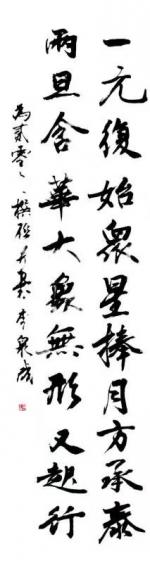 一元復始衆星捧月方承泰
兩旦含華大象無形又起行
為貳零
撰
李泉成